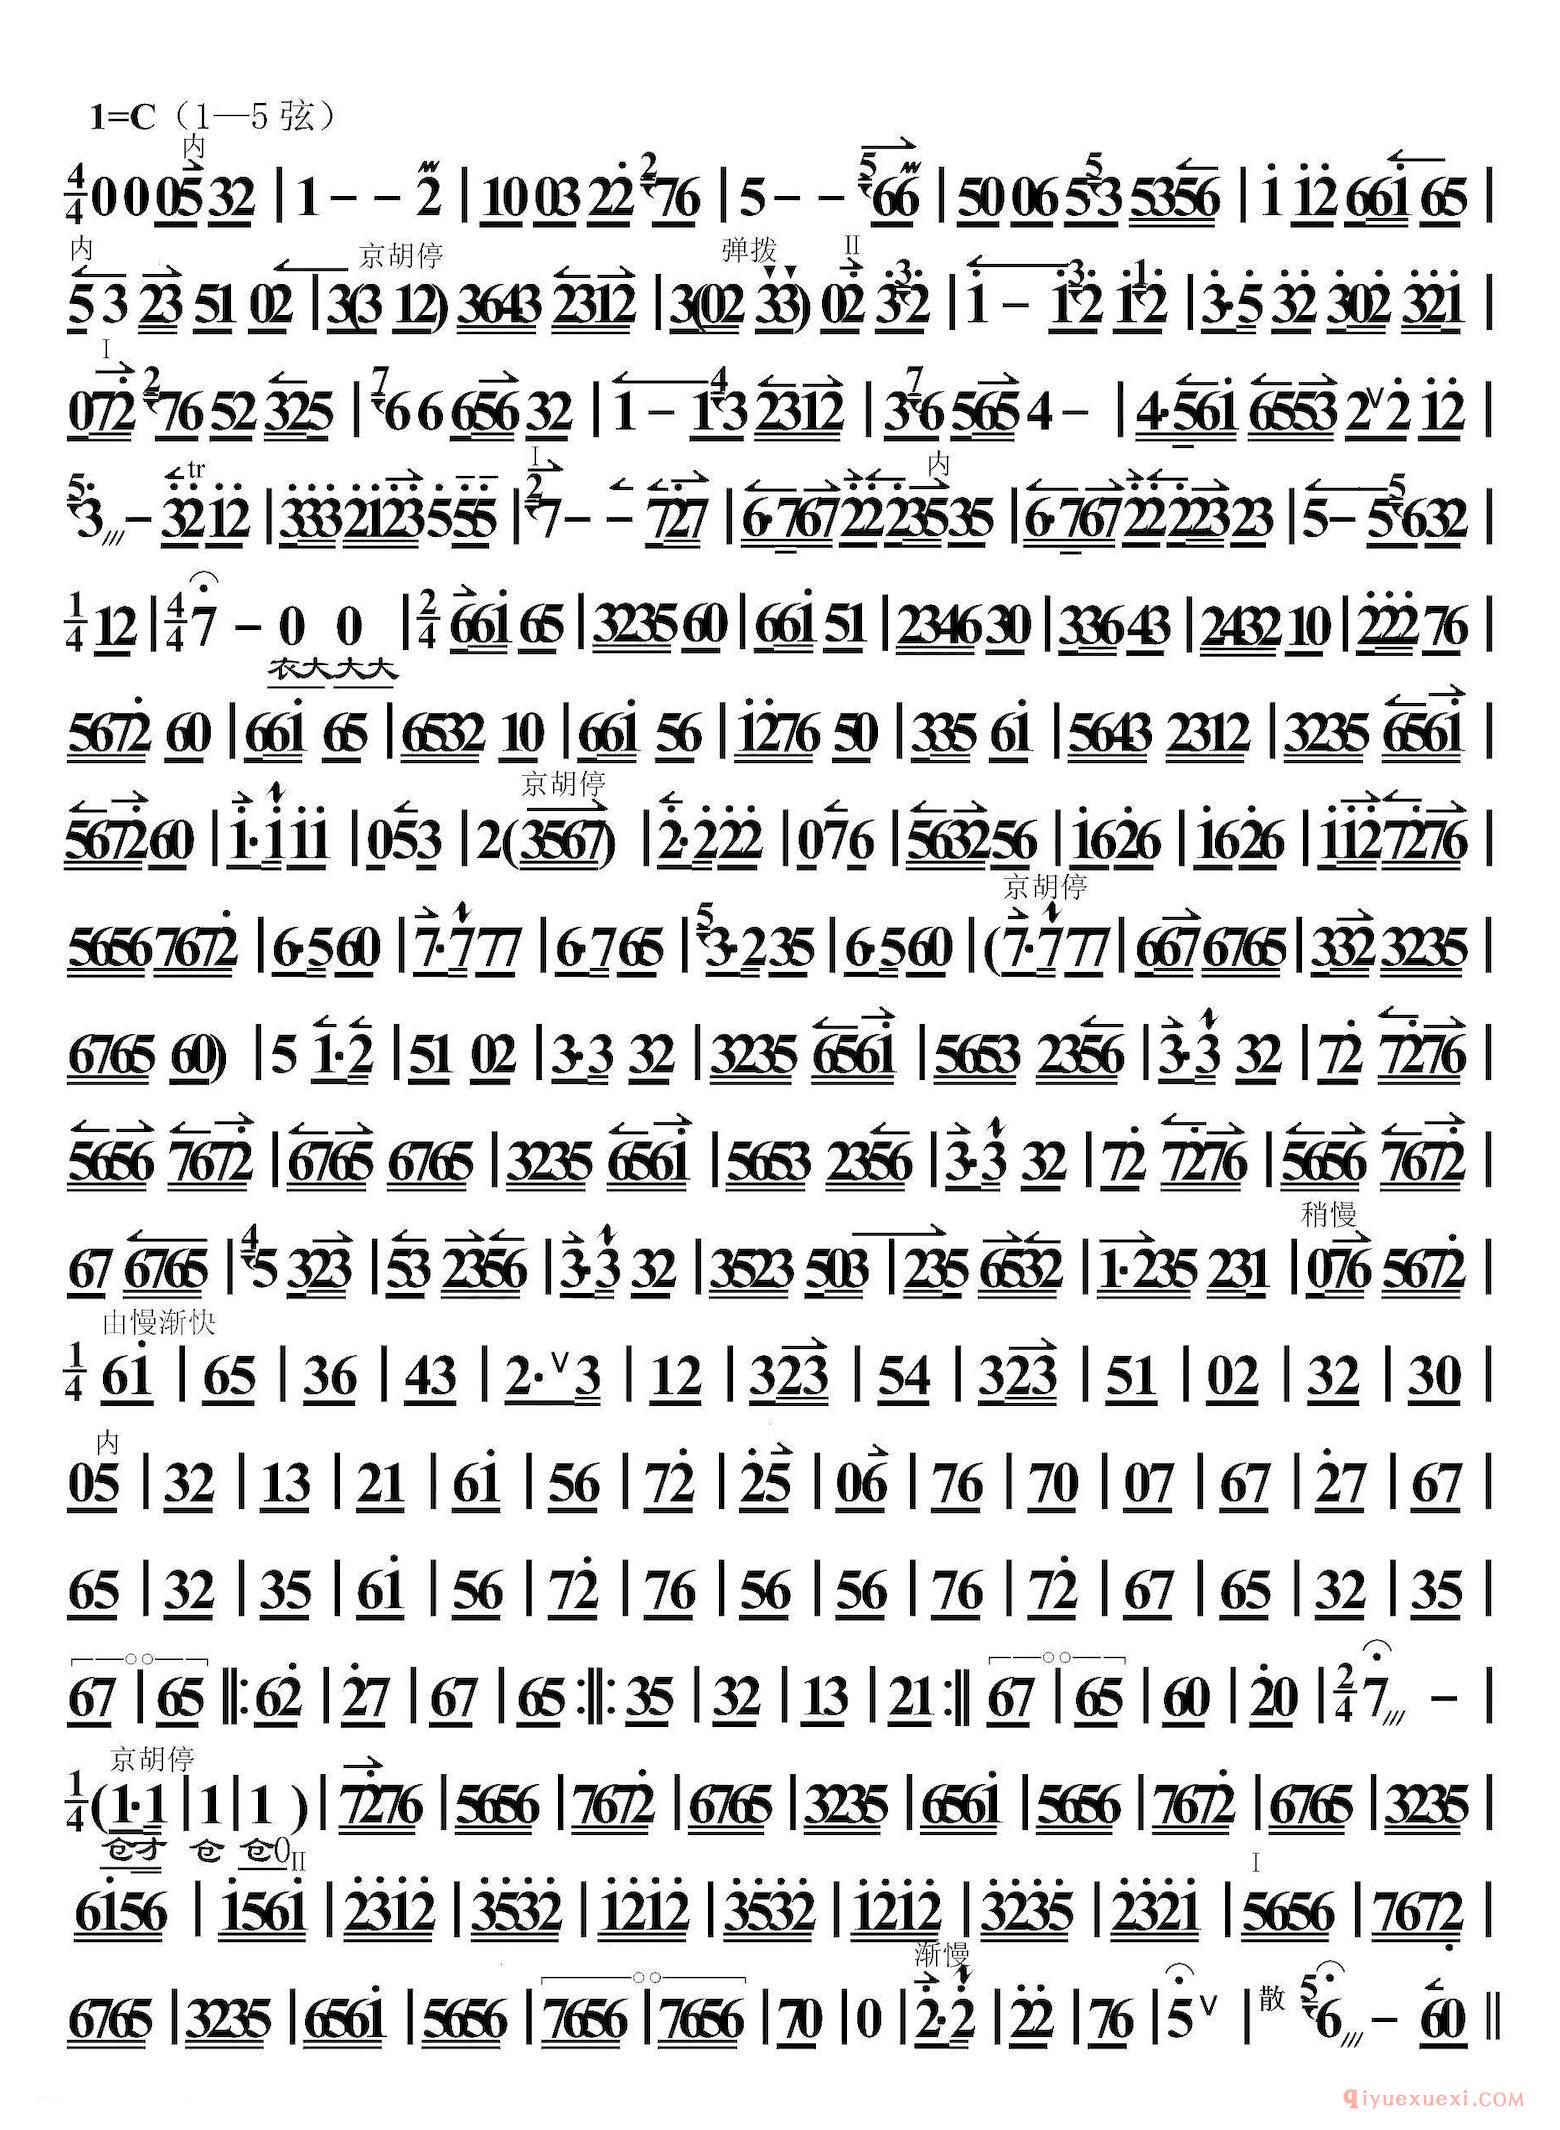 1=C（1—5 弦）
内
4/4 0 0 05 32 | 1 - - 2 | 10 03 22 2 76 | 5 - - 5 66 | 50 06 5 5 3 5356 | 1 12 661 65 |
内 京胡停 弹拨 II
5 3 23 51 02 | 3(3 12) 3643 2312 | 3(02 33) 02 3 3 2 | 1 - 1 3 2 1 1 2 | 3·5 32 302 321 |
I
072 2 76 52 325 | 7 6 6 656 32 | 1 - 1 4 3 2312 | 3 7 6 565 4 - | 4·561 6553 2 V 2 12 |
tr I 内
5 3 /// - 32 12 | 333 2123 555 | 2 7 - - 727 | 6·767 22 235 35 | 6·767 22 223 23 | 5 - 5 5 6 32 |
1/4 12 | 4/4 7 - 0 0 | 2/4 661 65 | 3235 60 | 661 51 | 2346 30 | 336 43 | 2432 10 | 222 76 |
衣大 大大
5672 60 | 661 65 | 6532 10 | 661 56 | 1276 50 | 335 61 | 5643 2312 | 3235 6561 |
京胡停
5672 60 | 1·1 11 | 053 | 2(3567) | 2·2 22 | 076 | 5632 56 | 1626 | 1626 | 112 7276 |
京胡停
5656 7672 | 6·5 60 | 7·7 77 | 6·7 65 | 5 3·2 35 | 6·5 60 | (7·7 77 | 667 6765 | 332 3235 |
6765 60) | 5 1·2 | 51 02 | 3·3 32 | 3235 6561 | 5653 2356 | 3·3 32 | 72 7276 |
5656 7672 | 6765 6765 | 3235 6561 | 5653 2356 | 3·3 32 | 72 7276 | 5656 7672 |
稍慢
67 6765 | 4 5 323 | 53 2356 | 3·3 32 | 3523 503 | 235 6532 | 1·235 231 | 076 5672 |
由慢渐快
1/4 61 | 65 | 36 | 43 | 2· V 3 | 12 | 323 | 54 | 323 | 51 | 02 | 32 | 30 |
内
05 | 32 | 13 | 21 | 61 | 56 | 72 | 25 | 06 | 76 | 70 | 07 | 67 | 27 | 67 |
65 | 32 | 35 | 61 | 56 | 72 | 76 | 56 | 56 | 76 | 72 | 67 | 65 | 32 | 35 |
67 | 65 ‖: 62 | 27 | 67 | 65 :‖: 35 | 32 | 13 | 21 :‖ 67 | 65 | 60 | 20 | 2/4 7 /// - |
京胡停
1/4 (1·1 | 1 | 1 ) | 7276 | 5656 | 7672 | 6765 | 3235 | 6561 | 5656 | 7672 | 6765 | 3235 |
仓才 仓 仓0 II I
6156 | 1561 | 2312 | 3532 | 1212 | 3532 | 1212 | 3235 | 2321 | 5656 | 7672 |
渐慢
6765 | 3235 | 6561 | 5656 | 7656 | 7656 | 70 | 0 | 2·2 | 22 | 76 | 5 V | 散 5 6 /// - 60 ‖
qiyuexuexi.COM